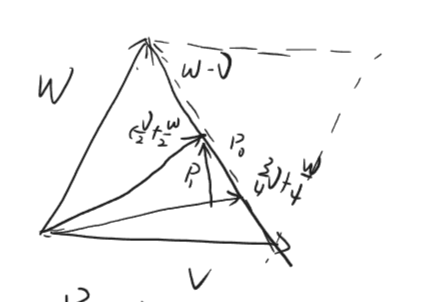 W
W-V
V/2+W/2
P₀
P₁
3/4V+W/4
V